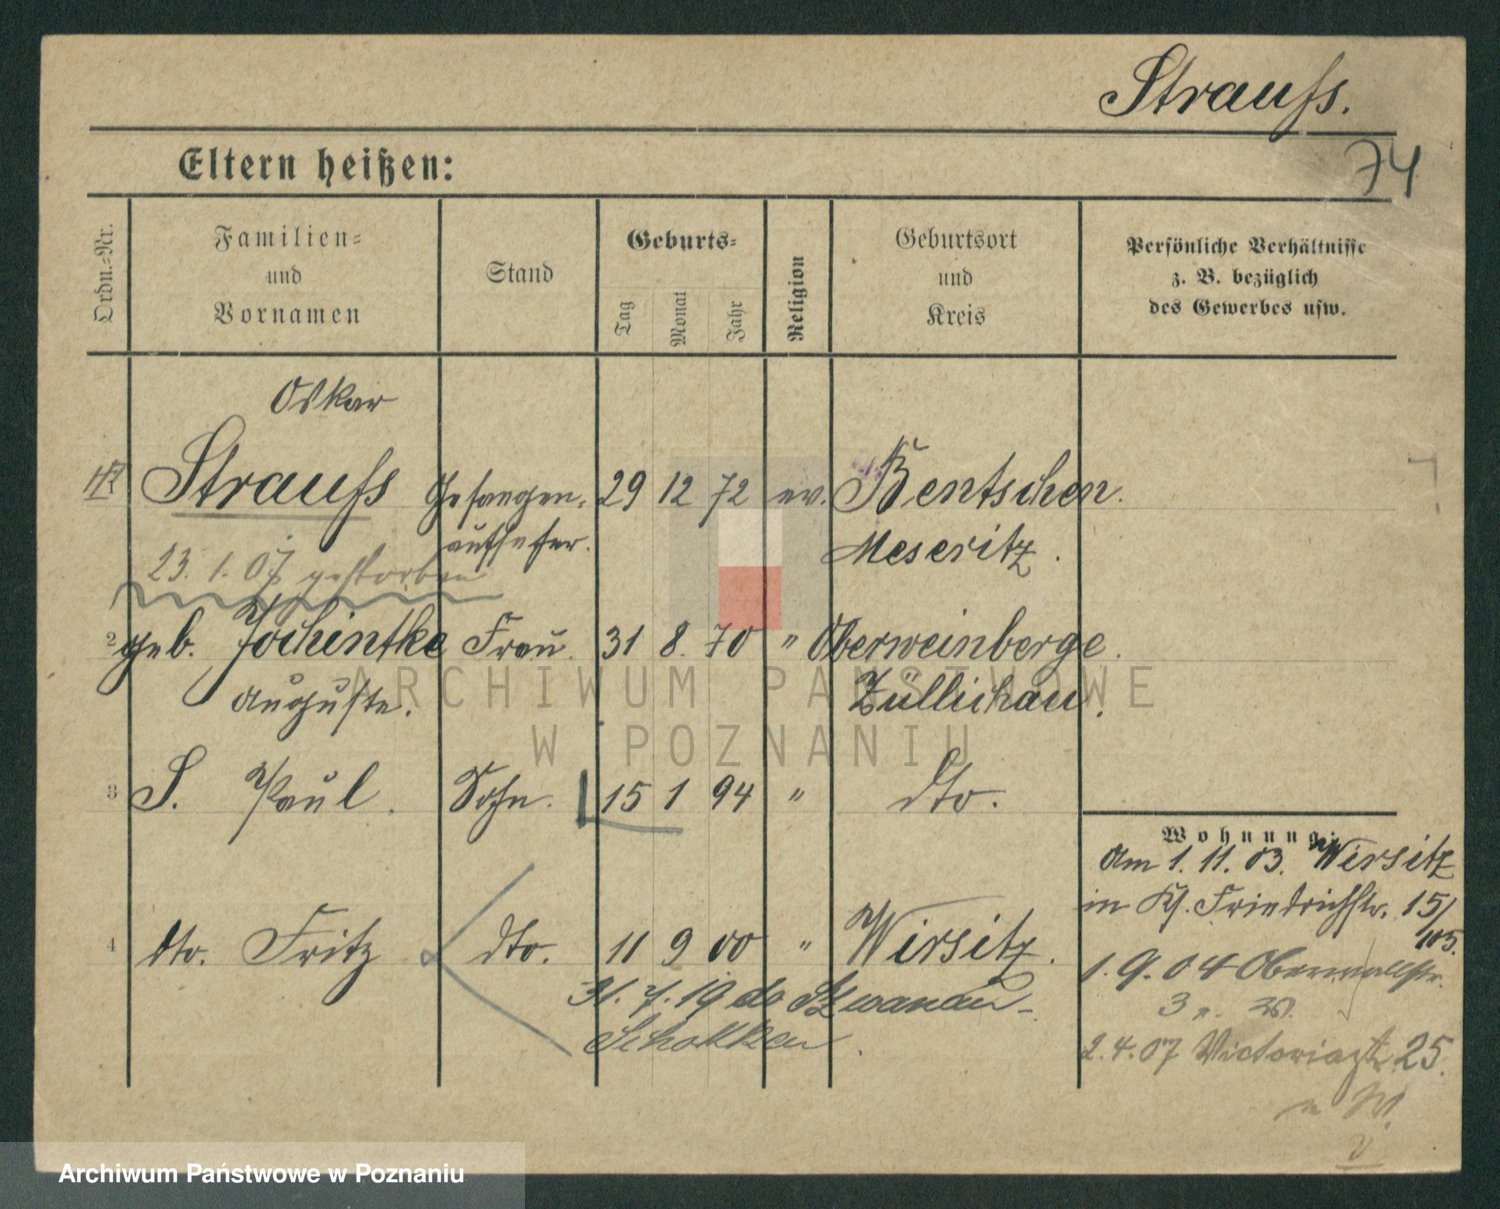 Strauss.
74
Eltern heißen:
Ordn.-Nr.
Familien-
und
Vornamen
Stand
Geburts-
Tag
Monat
Jahr
Religion
Geburtsort
und
Kreis
Persönliche Verhältnisse
z. B. bezüglich
des Gewerbes usw.
Oskar
Strauss Gefangen- 29 12 72 ev. Bentschen.
aufseher. Meseritz.
23.1.07 gestorben
2 geb. Jochintke Frau 31 8. 70 " Oberweinberge.
Auguste. Züllichau.
3 S. Paul. Sohn. 15 1 94 " dto.
Wohnung:
Am 1.11.03. Wirsitz
in Kl. Friedrichstr. 15/
105.
4 dto. Fritz dto. 11 9 00 " Wirsitz.
1.9.04 Oberwallstr.
31.7.19
3
Schokken.
2.4.07 Victoriastr. 25.
ARCHIWUM PAŃSTWOWE
W POZNANIU
Archiwum Państwowe w Poznaniu